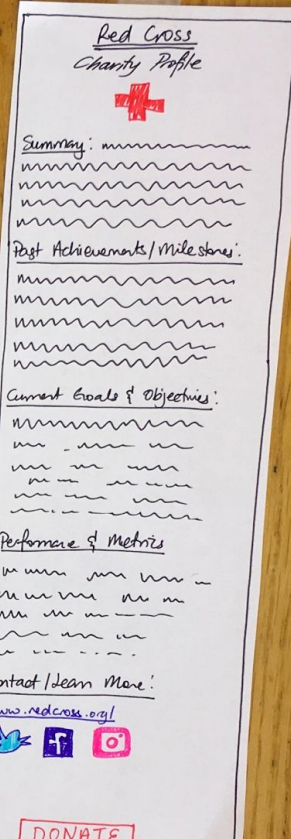 Red Cross
Charity Profile
Summary:
Past Achievements/Milestones:
Current Goals & Objectives:
Performance & Metrics
ntact/Learn More:
ww.redcross.org/
f
DONATE